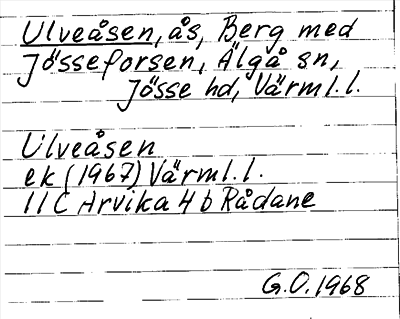 Ulveåsen, ås, Berg med
Jösseforsen, Älgå sn,
Jösse hd, Värml.l.
Ulveåsen
ek (1967) Värml.l.
11C Arvika 4b Rådane
G.O. 1968